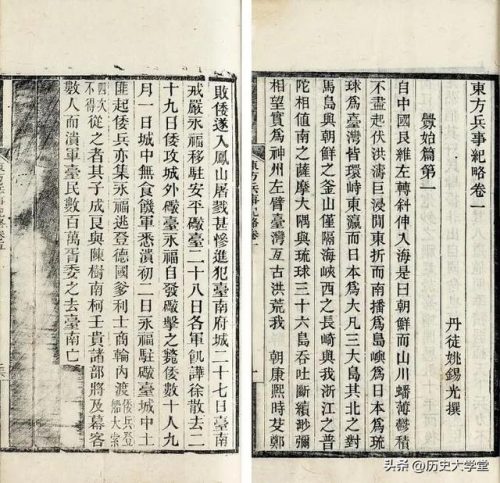 東方兵事紀略卷一
丹徒姚錫光撰
釁始篇第一
自中國艮維左轉斜伸入海是曰朝鮮而山川蟠薄鬱積
不盡起伏洪濤巨浸閒東折而南播爲島嶼爲日本爲琉
球爲臺灣皆環峙東瀛而日本爲大凡三大島其北之對
馬島與朝鮮之釜山僅隔海峽西之長崎與我浙江之普
陀相値南之薩摩大隅與琉球三十六島吞吐斷續砂彌
相望實爲神州左臂臺灣亙古洪荒我 朝康熙時芟鄭
敗倭遂入鳳山屠戮甚慘進犯臺南府城二十七日臺南
戒嚴永福移駐安平礮臺二十八日各軍飢譁徐散去二
十九日倭攻城外礮臺永福自發礮擊之斃倭數十人九
月一日城中無食饑軍悉潰初二日永福駐礮臺城中土
匪起倭兵亦集永福逃登德國爹利士商輪內渡倭兵登船大索
四次不得從之者其子成良與陳樹南柯壬貴諸部將及幕客
數人而潰軍臺民數百萬胥委之去臺南亡
头条 @历史大学堂